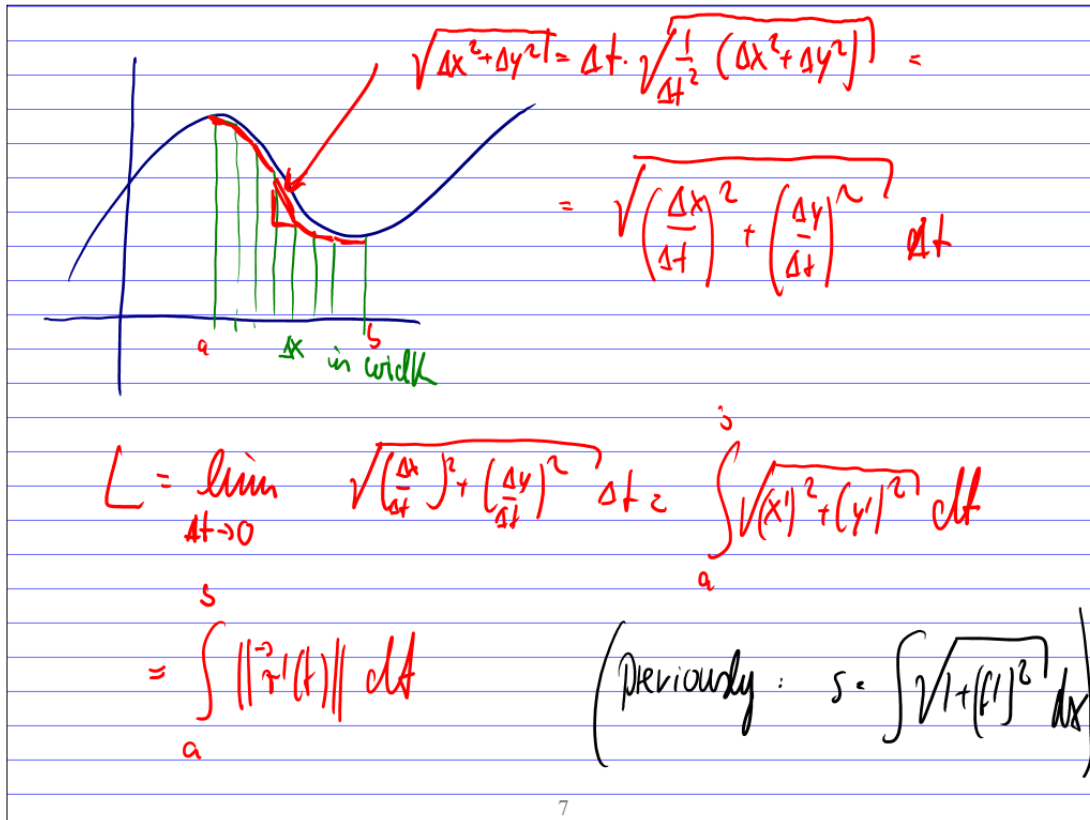 √(Δx²+Δy²) = Δt · √(1/Δt² (Δx²+Δy²)) =
= √((Δx/Δt)² + (Δy/Δt)²) Δt
a Δx b
in width
L = lim Δt→0 √((Δx/Δt)² + (Δy/Δt)²) Δt = ∫_a^b √((x')² + (y')²) dt
= ∫_a^b ||r⃗'(t)|| dt (previously : s = ∫ √(1+(f')²) dx)
7